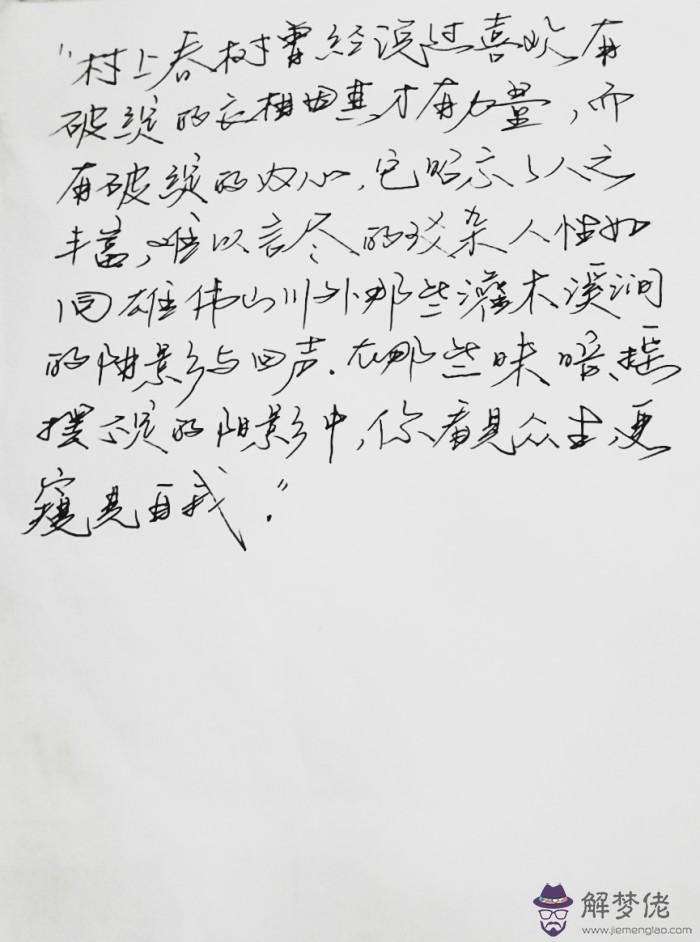 "村上春树曾经说过喜欢有
破绽的衣相因其才有力量，而
有破绽的内心，它昭示了人之
丰富，难以言尽的驳杂人性如
同雄伟山川外那些灌木溪涧
的阴影与回声．在那些昧暗、摇
摆不定的阴影中，你看见众生，更
窥见自我．"
解梦佬
www.jiemenglao.com